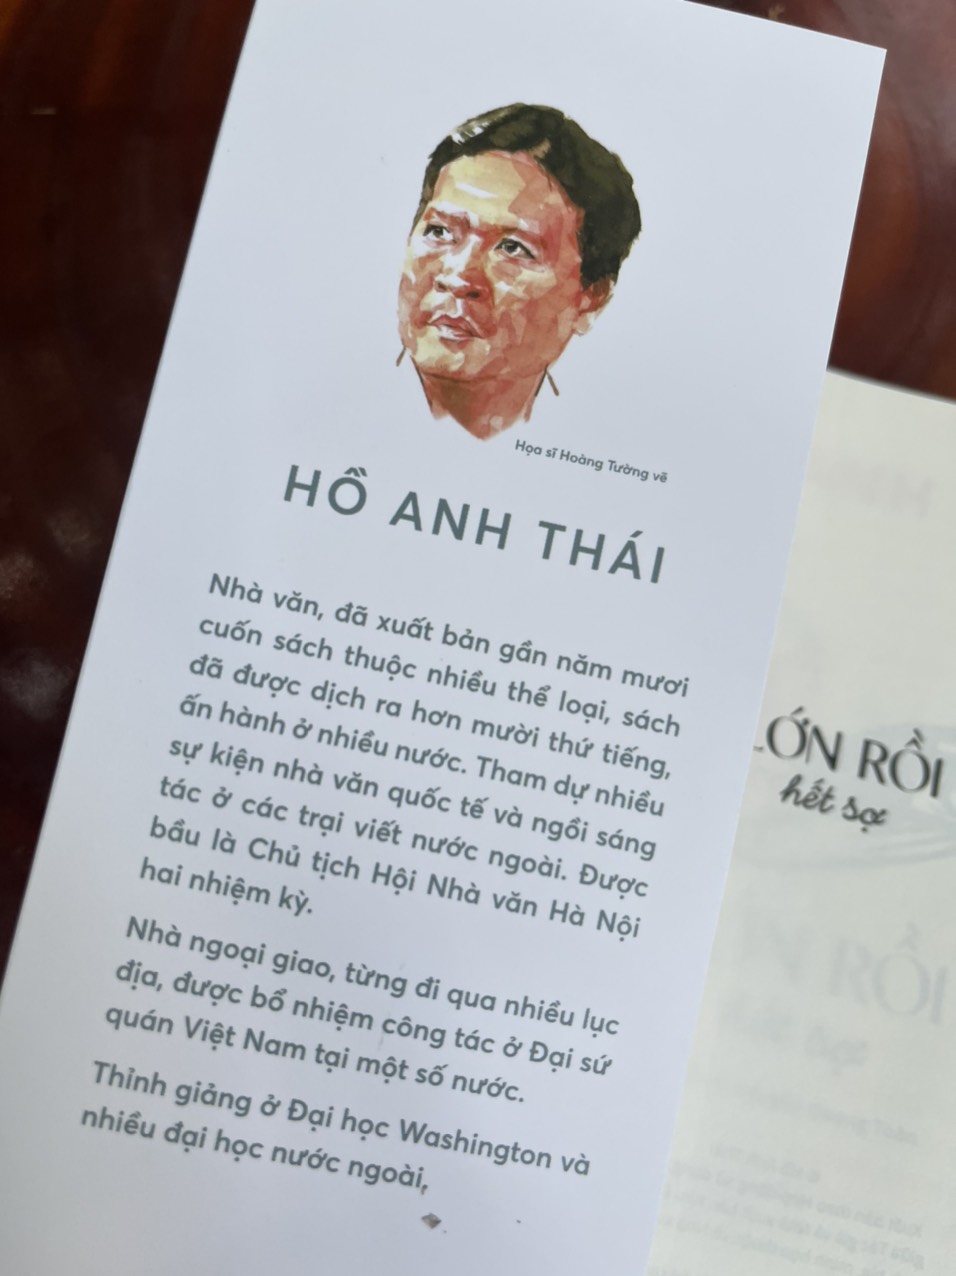 Họa sĩ Hoàng Tường vẽ
HỒ ANH THÁI
Nhà văn, đã xuất bản gần năm mươi
cuốn sách thuộc nhiều thể loại, sách
đã được dịch ra hơn mười thứ tiếng,
ấn hành ở nhiều nước. Tham dự nhiều
sự kiện nhà văn quốc tế và ngồi sáng
tác ở các trại viết nước ngoài. Được
bầu là Chủ tịch Hội Nhà văn Hà Nội
hai nhiệm kỳ.
Nhà ngoại giao, từng đi qua nhiều lục
địa, được bổ nhiệm công tác ở Đại sứ
quán Việt Nam tại một số nước.
Thỉnh giảng ở Đại học Washington và
nhiều đại học nước ngoài,
LỚN RỒI
hết sợ